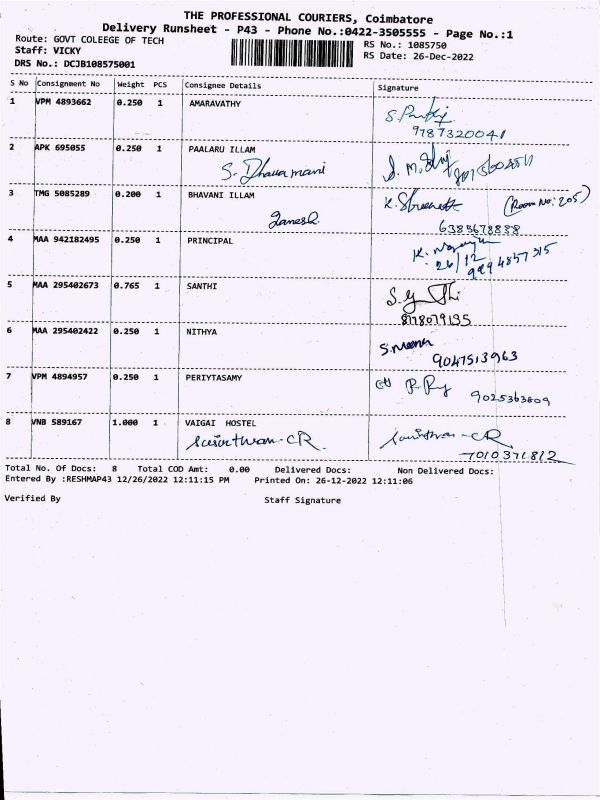 THE PROFESSIONAL COURIERS, Coimbatore
Delivery Runsheet - P43 - Phone No.:0422-3505555 - Page No.:1
Route: GOVT COLEEGE OF TECH
Staff: VICKY
DRS No.: DCJB108575001
RS No.: 1085750
RS Date: 26-Dec-2022
S No Consignment No Weight PCS Consignee Details Signature
1 VPM 4893662 0.250 1 AMARAVATHY
9787320041
2 APK 695055 0.250 1 PAALARU ILLAM
S. Dhavamani
3 TMG 5085289 0.200 1 BHAVANI ILLAM (Room No: 205)
Ganesh
6383678838
4 MAA 942182495 0.250 1 PRINCIPAL
26/12
9994857315
5 MAA 295402673 0.765 1 SANTHI
8778079135
6 MAA 295402422 0.250 1 NITHYA
S. Meena
9047513963
7 VPM 4894957 0.250 1 PERIYTASAMY
9025363809
8 VNB 589167 1.000 1 VAIGAI HOSTEL
7010371812
Total No. Of Docs: 8 Total COD Amt: 0.00 Delivered Docs: Non Delivered Docs:
Entered By :RESHMAP43 12/26/2022 12:11:15 PM Printed On: 26-12-2022 12:11:06
Verified By Staff Signature